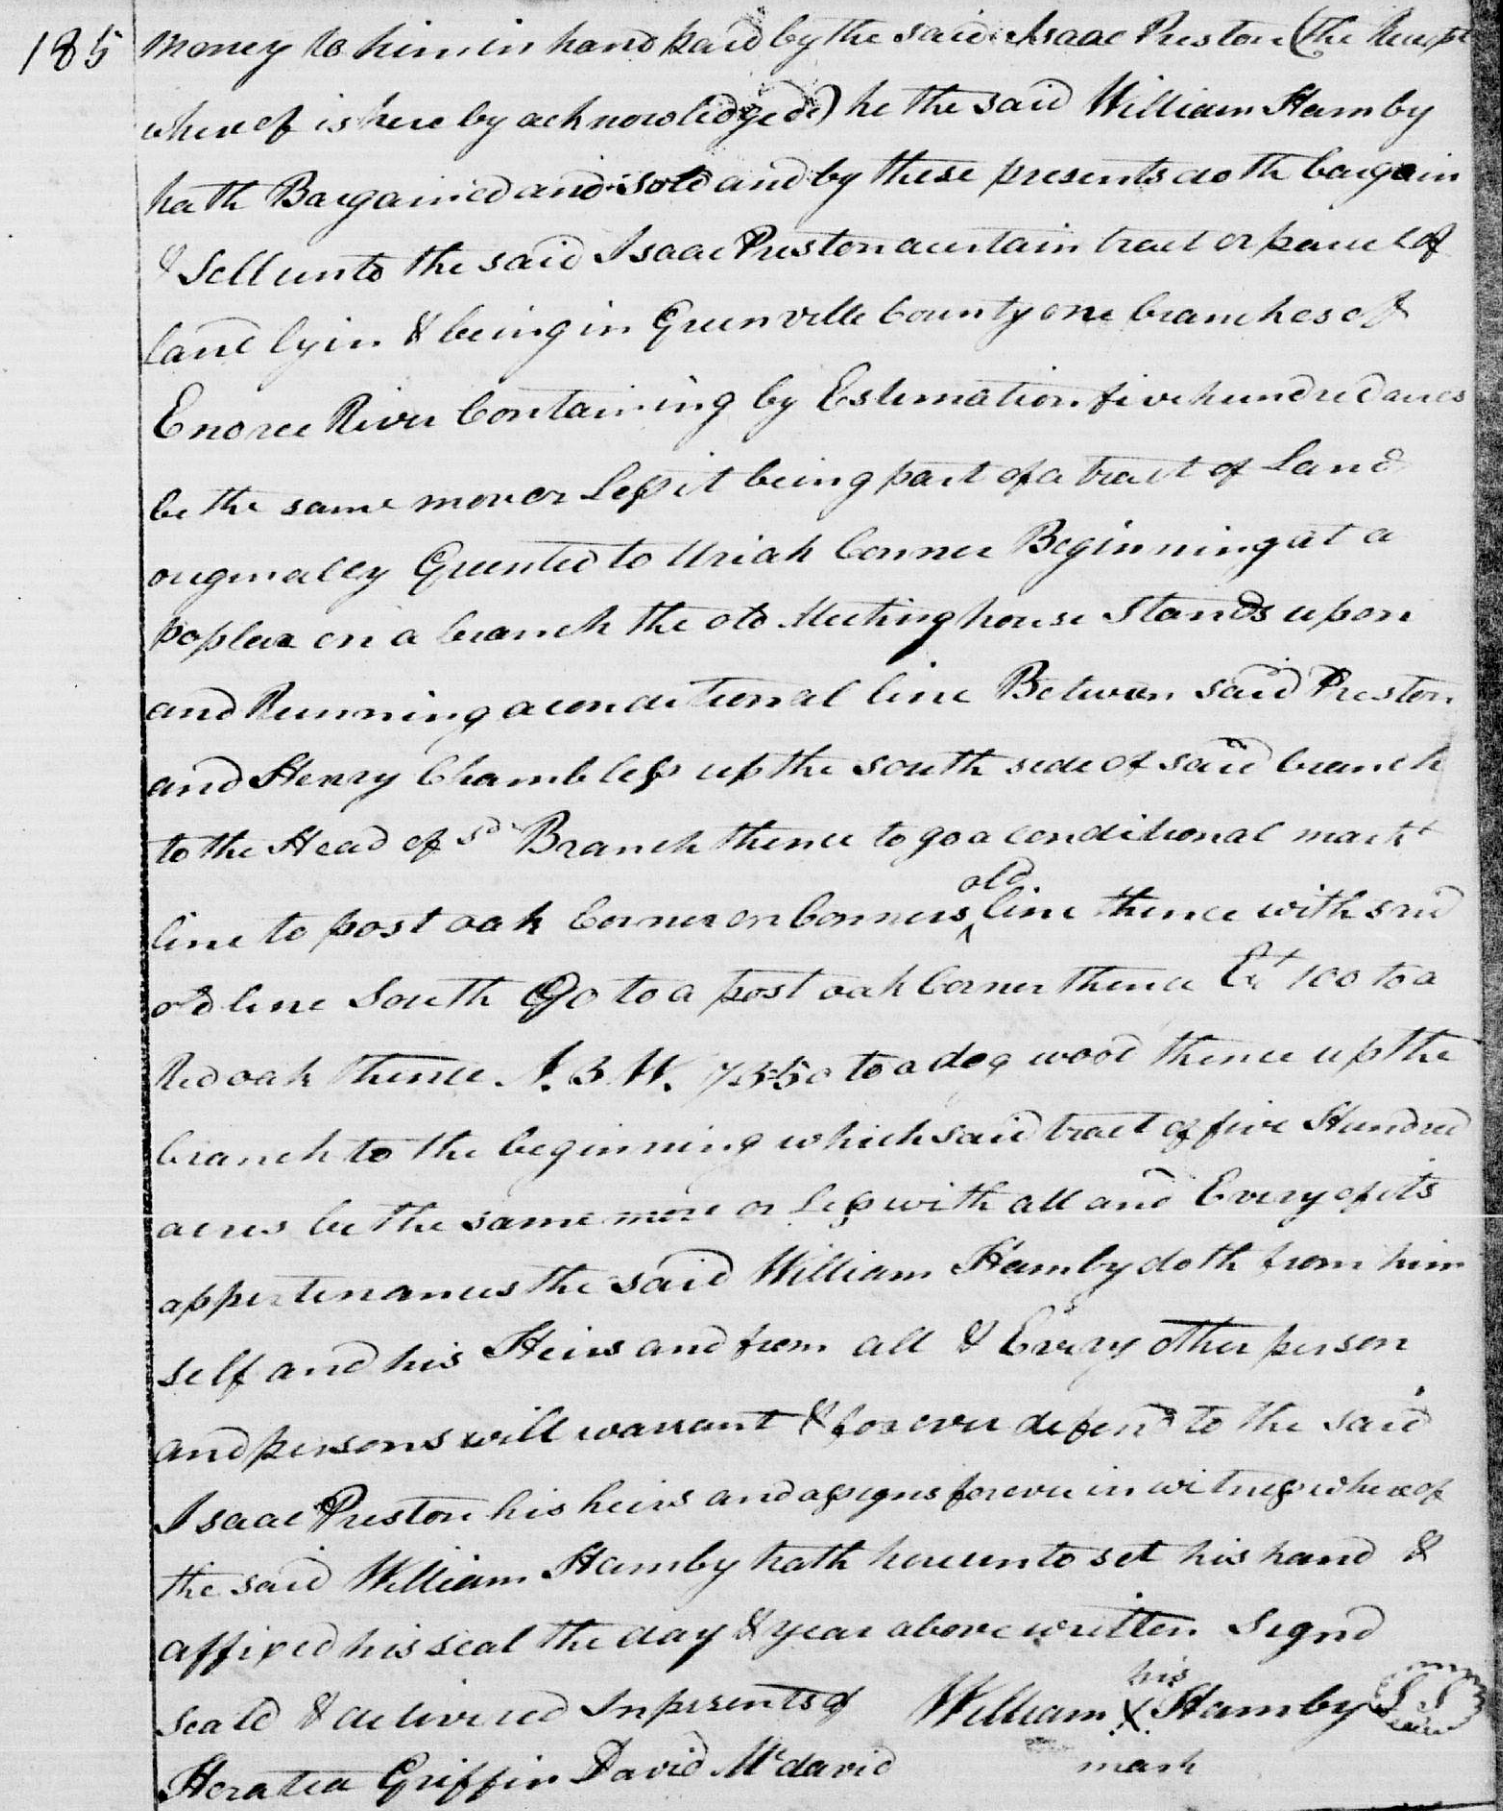 185 money to him in hand paid by the said Isaac Preston (the Receipt
whereof is hereby acknowledged) he the said William Hamby
hath Bargained and sold and by these presents doth bargain
& Sell unto the said Isaac Preston a certain tract or parcel of
land lyin & being in Greenville County one branches of
Enoree River Containing by Estemation five hundred acres
be the same more or Less it being part of a tract of Land
originaley Greented to Uriah Conner Beginning at a
poplar on a branch the old Meeting house Stands upon
and Running a conditional line Between said Preston
and Henry Chambless up the south side of said branch
to the Head of sd Branch thence to go a conditional markt
line to post oak Corner on Conners old line thence with said
old line South 90 to a post oak Corner thence Et 100 to a
Red oak thence N. 3 W. to a dog wood thence up the
branch to the beginning which said tract of five Hundred
acres be the same more or Less with all and Every of its
appertenances the said William Hamby doth from him
self and his Heirs and from all & Every other person
and persons will warrant & forever defend to the said
Isaac Preston his heirs and assigns forever in witness whereof
the said William Hamby hath hereunto set his hand &
affixed his seal the day & year above written Signd
Seald & delivered In presents of William his X mark Hamby LS
Heratea Griffin David Mcdavid